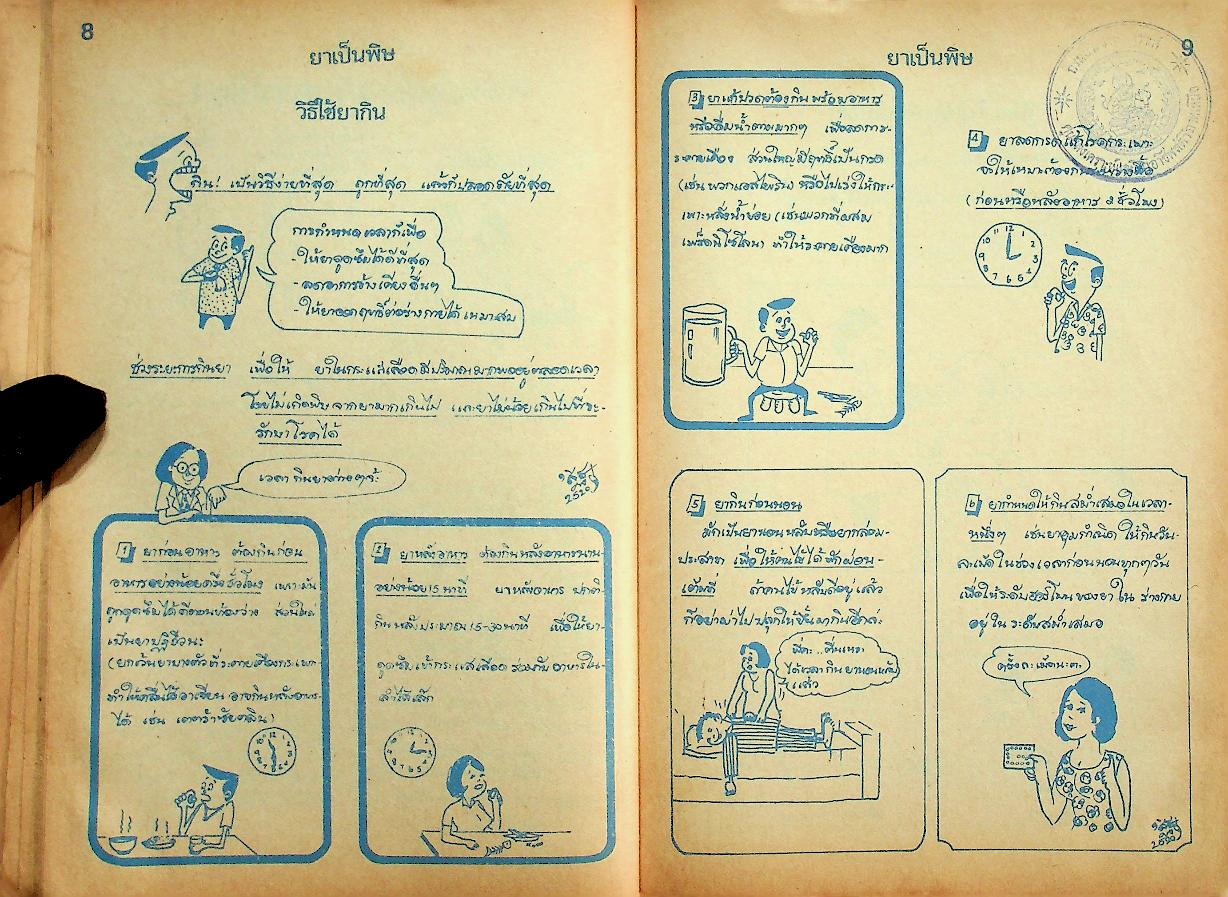 8
ยาเป็นพิษ
วิธีใช้ยากิน
กิน! เป็นวิธีง่ายที่สุด ถูกที่สุด แล้วก็ปลอดภัยที่สุด
การกำหนดเวลาก็เพื่อ
- ให้ยาดูดซึมได้ดีที่สุด
- ลดอาการข้างเคียงอื่นๆ
- ให้ยาออกฤทธิ์ต่อร่างกายได้เหมาะสม
ช่วงระยะการกินยา เพื่อให้ ยาในกระแสเลือดมีปริมาณมากพออยู่ตลอดเวลา
โดยไม่เกิดพิษจากยามากเกินไป และยาไม่น้อยเกินไปที่จะ-
รักษาโรคได้
เวลากินยาต่างๆค่ะ
2520
1 ยาก่อนอาหาร ต้องกินก่อน
อาหารอย่างน้อยครึ่งชั่วโมง เพราะมัน
ถูกดูดซึมได้ดีตอนท้องว่าง ส่วนใหญ่
เป็นยาปฏิชีวนะ
(ยกเว้นยาบางตัวที่ระคายเคืองกระเพาะ
ทำให้คลื่นไส้อาเจียน อาจกินหลังอาหาร
ได้ เช่น เตตร้าซัยคลิน)
2 ยาหลังอาหาร ต้องกินหลังอาหารนาน
อย่างน้อย 15 นาที ยาหลังอาหาร ปกติ
กินหลังประมาณ 15-30 นาที เพื่อให้ยา-
ดูดซึมเข้ากระแสเลือด ร่วมกับอาหารใน-
ลำไส้เล็ก
9
ยาเป็นพิษ
3 ยาแก้ปวดต้องกินพร้อมอาหาร
หรือดื่มน้ำตามมากๆ เพื่อลดการ-
ระคายเคือง ส่วนใหญ่มีฤทธิ์เป็นกรด
(เช่น พวกแอสไพริน) หรือไปเร่งให้กระ-
เพาะหลั่งน้ำย่อย (เช่นพวกที่ผสม
เพร็ดนิโซโลน) ทำให้ระคายเคืองมาก
4 ยาลดกรดแก้โรคกระเพาะ
จะให้เหมาะต้องกิน
(ก่อนหรือหลังอาหาร 2 ชั่วโมง)
5 ยากินก่อนนอน
มักเป็นยานอนหลับหรือยากล่อม-
ประสาท เพื่อให้คนไข้ได้พักผ่อน-
เต็มที่ ถ้าคนไข้หลับดีอยู่แล้ว
ก็อย่าผ่าไปปลุกให้ขึ้นมากินอีกล่ะ
พี่คะ..ตื่นเหอะ
ได้เวลากินยานอนหลับ
แล้ว
6 ยากำหนดให้กินสม่ำเสมอในเวลา-
หนึ่งๆ เช่นยาคุมกำเนิด ให้กินวัน-
ละเม็ดในช่วงเวลาก่อนนอนทุกๆวัน
เพื่อให้ระดับฮอร์โมนของยาในร่างกาย
อยู่ในระดับสม่ำเสมอ
ครั้งละเม็ดนะคะ
2520